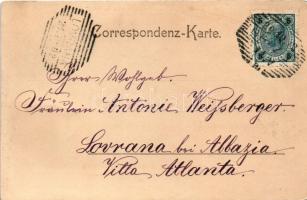 Correspondenz-Karte.
Ihrer Wohlgeb.
Fräulein Antonie Weißberger.
Lovrana bei Abbazia.
Villa Atlanta.